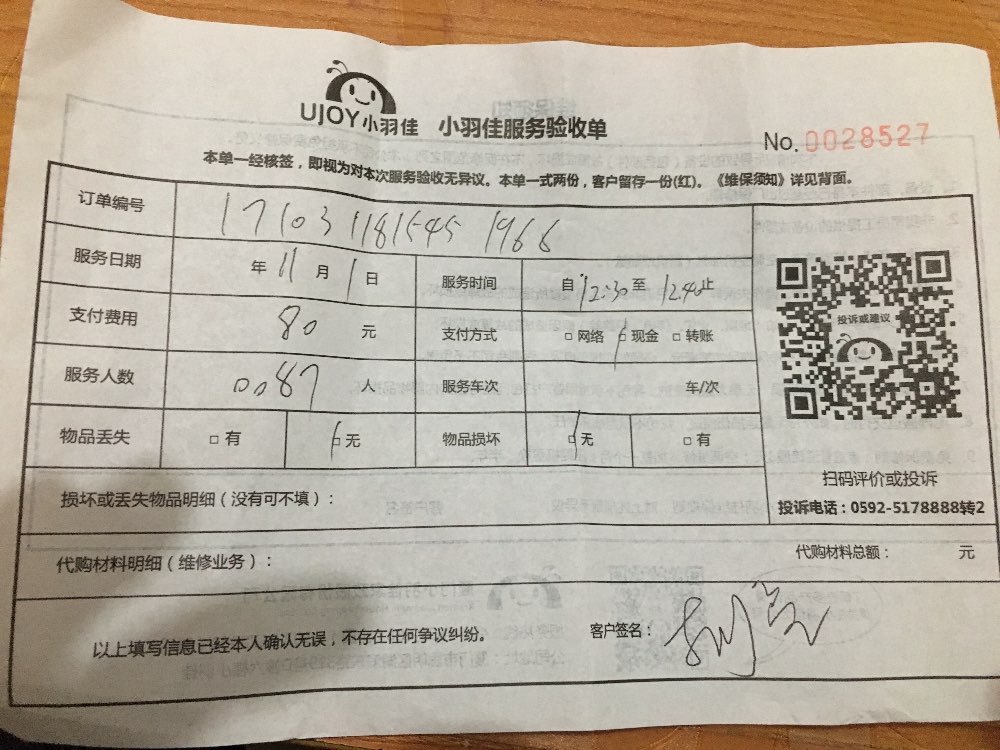 UJOY小羽佳 小羽佳服务验收单
No. 0028527
本单一经核签，即视为对本次服务验收无异议。本单一式两份，客户留存一份(红)。《维保须知》详见背面。
订单编号 17103 1181545 1966
服务日期 年 11 月 1 日 服务时间 自 12:30 至 12:40 止
支付费用 80 元 支付方式 □ 网络 □ 现金 □ 转账
服务人数 0087 人 服务车次 车/次
物品丢失 □ 有 □ 无 物品损坏 □ 无 □ 有
投诉或建议
扫码评价或投诉
投诉电话：0592-5178888转2
损坏或丢失物品明细（没有可不填）：
代购材料明细（维修业务）： 代购材料总额： 元
以上填写信息已经本人确认无误，不存在任何争议纠纷。 客户签名：